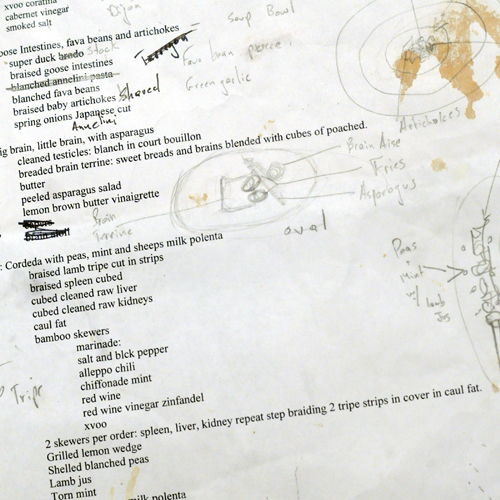 xvoo coratina
cabernet vinegar
smoked salt
Dijon
Soup Bowl
oose Intestines, fava beans and artichokes
super duck brodo stock
braised goose intestines
blanched annelini pasta
blanched fava beans
braised baby artichokes Shaved
spring onions Japanese cut
Annelini
Tarragon
Fava bean puree
Green garlic
Artichokes
ig brain, little brain, with asparagus
cleaned testicles: blanch in court bouillon
breaded brain terrine: sweet breads and brains blended with cubes of poached.
butter
peeled asparagus salad
lemon brown butter vinaigrette
Brain Aise
Fries
Asparagus
Brain
Terrine
oval
: Cordeda with peas, mint and sheeps milk polenta
braised lamb tripe cut in strips
braised spleen cubed
cubed cleaned raw liver
cubed cleaned raw kidneys
caul fat
bamboo skewers
Peas
+
Mint
w/ lamb
Jus
marinade:
salt and blck pepper
alleppo chili
chiffonade mint
red wine
red wine vinegar zinfandel
xvoo
Tripe
2 skewers per order: spleen, liver, kidney repeat step braiding 2 tripe strips in cover in caul fat.
Grilled lemon wedge
Shelled blanched peas
Lamb jus
Torn mint
milk polenta